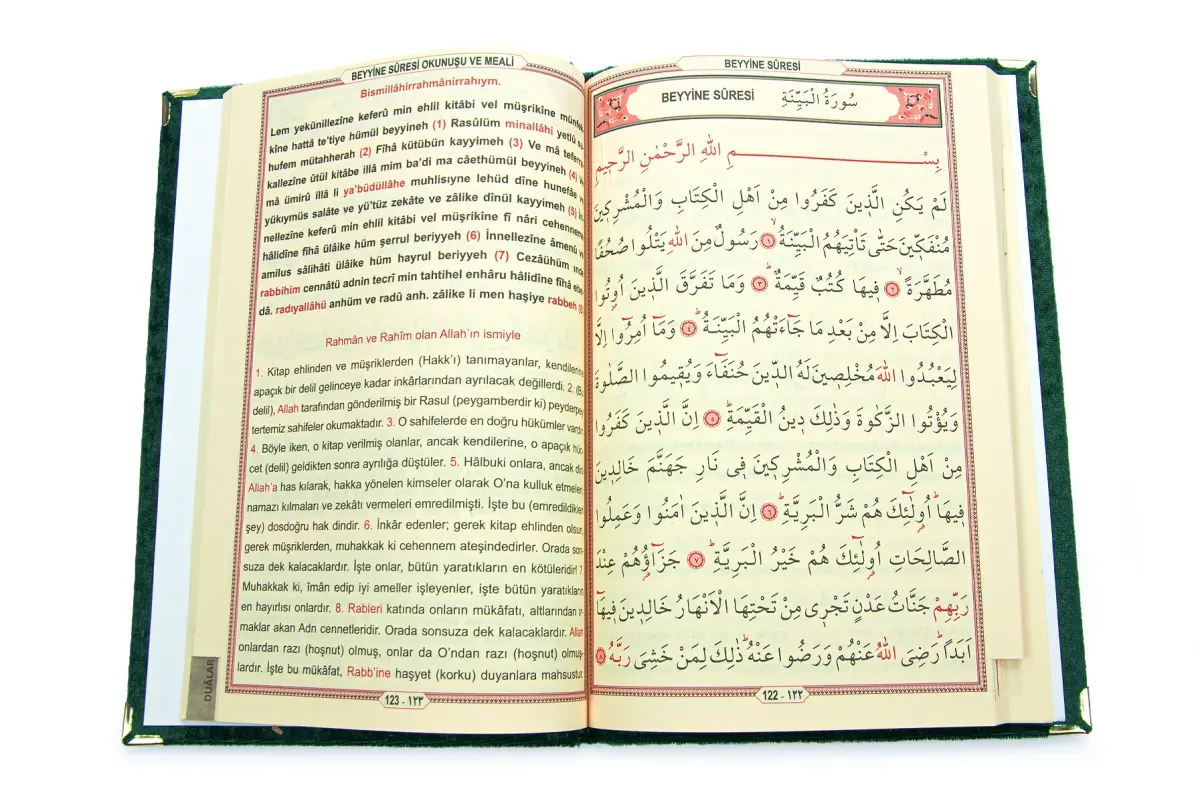 BEYYİNE SÛRESİ
BEYYİNE SÛRESİ سُورَةُ الْبَيِّنَةِ
بِسْمِ اللهِ الرَّحْمٰنِ الرَّحِيمِ
لَمْ يَكُنِ الَّذِينَ كَفَرُوا مِنْ اَهْلِ الْكِتَابِ وَالْمُشْرِكِينَ
مُنْفَكِّينَ حَتّٰى تَأْتِيَهُمُ الْبَيِّنَةُۙ ﴿١﴾ رَسُولٌ مِنَ اللهِ يَتْلُوا صُحُفًا
مُطَهَّرَةًۙ ﴿٢﴾ فِيهَا كُتُبٌ قَيِّمَةٌۜ ﴿٣﴾ وَمَا تَفَرَّقَ الَّذِينَ اُو۫تُوا
الْكِتَابَ اِلَّا مِنْ بَعْدِ مَا جَٓاءَتْهُمُ الْبَيِّنَةُۜ ﴿٤﴾ وَمَٓا اُمِرُٓوا اِلَّا
لِيَعْبُدُوا اللهَ مُخْلِصِينَ لَهُ الدِّينَ حُنَفَٓاءَ وَيُقِيمُوا الصَّلٰوةَ
وَيُؤْتُوا الزَّكٰوةَ وَذٰلِكَ دِينُ الْقَيِّمَةِۜ ﴿٥﴾ اِنَّ الَّذِينَ كَفَرُوا
مِنْ اَهْلِ الْكِتَابِ وَالْمُشْرِكِينَ فِي نَارِ جَهَنَّمَ خَالِدِينَ
فِيهَاۜ اُو۬لٰٓئِكَ هُمْ شَرُّ الْبَرِيَّةِۜ ﴿٦﴾ اِنَّ الَّذِينَ اٰمَنُوا وَعَمِلُوا
الصَّالِحَاتِ اُو۬لٰٓئِكَ هُمْ خَيْرُ الْبَرِيَّةِۜ ﴿٧﴾ جَزَٓاؤُ۬هُمْ عِنْدَ
رَبِّهِمْ جَنَّاتُ عَدْنٍ تَجْرِي مِنْ تَحْتِهَا الْاَنْهَارُ خَالِدِينَ فِيهَٓا
اَبَدًاۜ رَضِيَ اللهُ عَنْهُمْ وَرَضُوا عَنْهُۜ ذٰلِكَ لِمَنْ خَشِيَ رَبَّهُ ﴿٨﴾
122 - ١٢٢
BEYYİNE SÛRESİ OKUNUŞU VE MEALİ
Bismillâhirrahmânirrahıym.
Lem yekünillezîne keferû min ehlil kitâbi vel müşrikîne
kîne hattâ te'tiye hümül beyyineh (1) Rasûlüm minallâhi yetlû
hufem mütahherah (2) Fîhâ kütübün kayyimeh (3) Ve mâ
kallezîne ûtül kitâbe illâ mim ba'di ma câethümül beyyineh (4)
mâ ümirû illâ li ya'büdüllâhe muhlisıyne lehüd dîne hunefâe
yükıymüs salâte ve yü'tüz zekâte ve zâlike dînül kayyimeh (5)
nellezîne keferû min ehlil kitâbi vel müşrikîne fî nâri cehenneme
hâlidîne fîhâ ülâike hüm şerrul beriyyeh (6) İnnellezîne âmenû
amilus sâlihâti ülâike hüm hayrul beriyyeh (7) Cezâühüm ınde
rabbihim cennâtü adnin tecrî min tahtihel enhâru hâlidîne fîhâ ebe-
dâ. radıyallâhü anhüm ve radû anh. zâlike li men haşiye rabbeh (8)
Rahmân ve Rahîm olan Allah'ın ismiyle
1. Kitap ehlinden ve müşriklerden (Hakk'ı) tanımayanlar, kendilerine
apaçık bir delil gelinceye kadar inkârlarından ayrılacak değillerdi. 2. (Bu
delil), Allah tarafından gönderilmiş bir Rasul (peygamberdir ki) peyderpey
tertemiz sahifeler okumaktadır. 3. O sahifelerde en doğru hükümler vardır.
4. Böyle iken, o kitap verilmiş olanlar, ancak kendilerine, o apaçık hüc-
cet (delil) geldikten sonra ayrılığa düştüler. 5. Hâlbuki onlara, ancak dini
Allah'a has kılarak, hakka yönelen kimseler olarak O'na kulluk etmeleri,
namazı kılmaları ve zekâtı vermeleri emredilmişti. İşte bu (emredildikleri
şey) dosdoğru hak dindir. 6. İnkâr edenler; gerek kitap ehlinden olsun
gerek müşriklerden, muhakkak ki cehennem ateşindedirler. Orada son-
suza dek kalacaklardır. İşte onlar, bütün yaratıkların en kötüleridir! 7.
Muhakkak ki, îmân edip iyi ameller işleyenler, işte bütün yaratıkların
en hayırlısı onlardır. 8. Rableri katında onların mükâfatı, altlarından ır-
maklar akan Adn cennetleridir. Orada sonsuza dek kalacaklardır. Allah
onlardan razı (hoşnut) olmuş, onlar da O'ndan razı (hoşnut) olmuş-
lardır. İşte bu mükâfat, Rabb'ine haşyet (korku) duyanlara mahsustur.
DUÂLAR
123 - ١٢٣